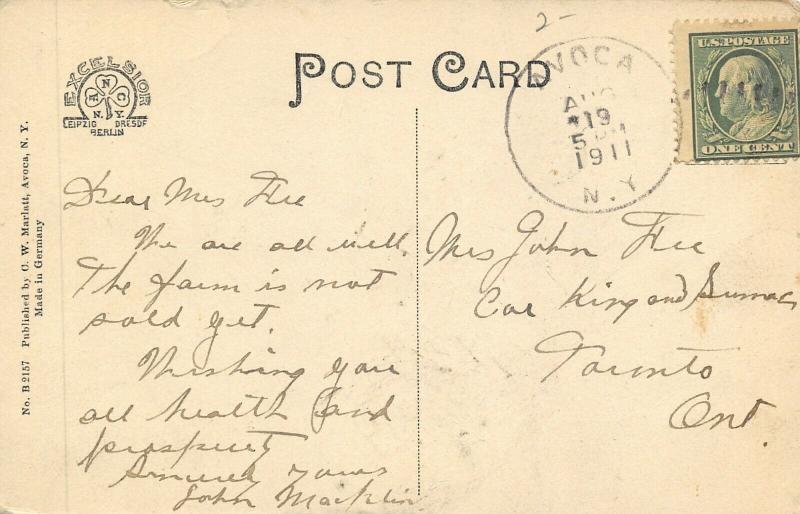 2-
POST CARD
AVOCA
AUG
19
5 PM
1911
N.Y
U.S.POSTAGE
ONE CENT
EXCELSIOR
A N C
N.Y.
LEIPZIG DRESDE
BERLIN
No. B 2157 Published by C. W. Marlatt, Avoca, N. Y.
Made in Germany
Dear Mrs Fee
We are all well.
The farm is not
sold yet.
Wishing you
all health and
prosperity
Sincerely yours
John Macklin
Mrs John Fee
Cor King and Sumac
Toronto
Ont.